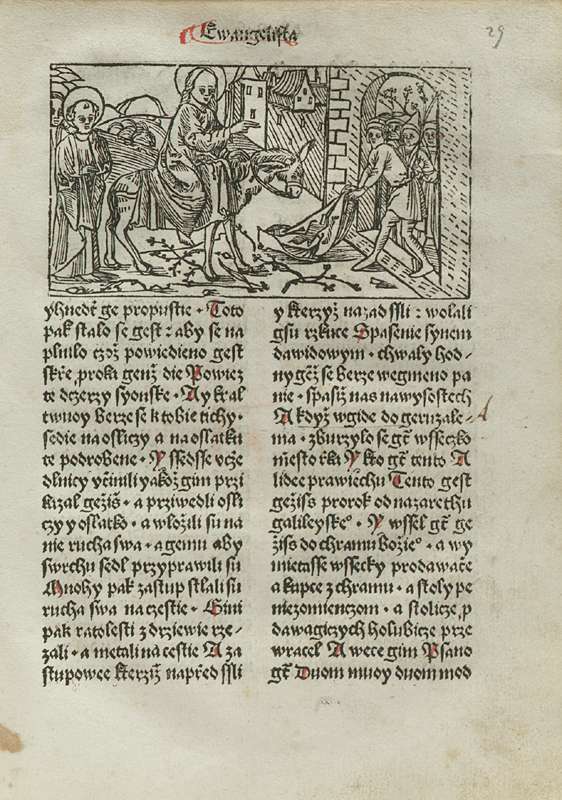 Ewangelista
29
yhnedt ge propustie · Toto
pak stalo se gest : aby se na
plnilo czož powiedieno gest
skrze proka genž die Powiez
te dczerzy syonske · Ay kral
twuoy berze se k tobie tichy ·
sedie na oslíczy a na oslatku
te podrobene · Y ssedsse vcze
dlnicy vczinili yakož gim przi
kazal gežiss · a przwedli osli
czy y oslatko · a wložili su na
nie rucha swa · a gemu aby
swrchu sedl przyprawili su
Mnohy pak zastup stlali su
rucha swa na czestie · Gini
pak ratolesti z drziewie rze-
zali · a metali na cestie A za
stupowee kterzyž napřed ssli
y kterzyž nazad ssli : wolali
gsu rzkuce Spasenie synem
dawidowym · chwaly hod-
ny genž se berze wegmeno pa
nie · spasiž nas na wysostech
A když wgide do geruzale-
ma · zburzylo se gt wsseczko
miesto rka Y kto gt tento A
lidee prawiechu Tento gest
gežiss prorok od nazarethu
galileyske⁹ · Y wssel gt ge
žiss do chramu božie⁹ · a wy
mietasse wssecky prodawače
a kupce z chramu · a stoly pe
niezomienczom · a stolicze p
dawagiczych holubicze prze
wracel A wece gim Psano
gt Duom muoy duom mod